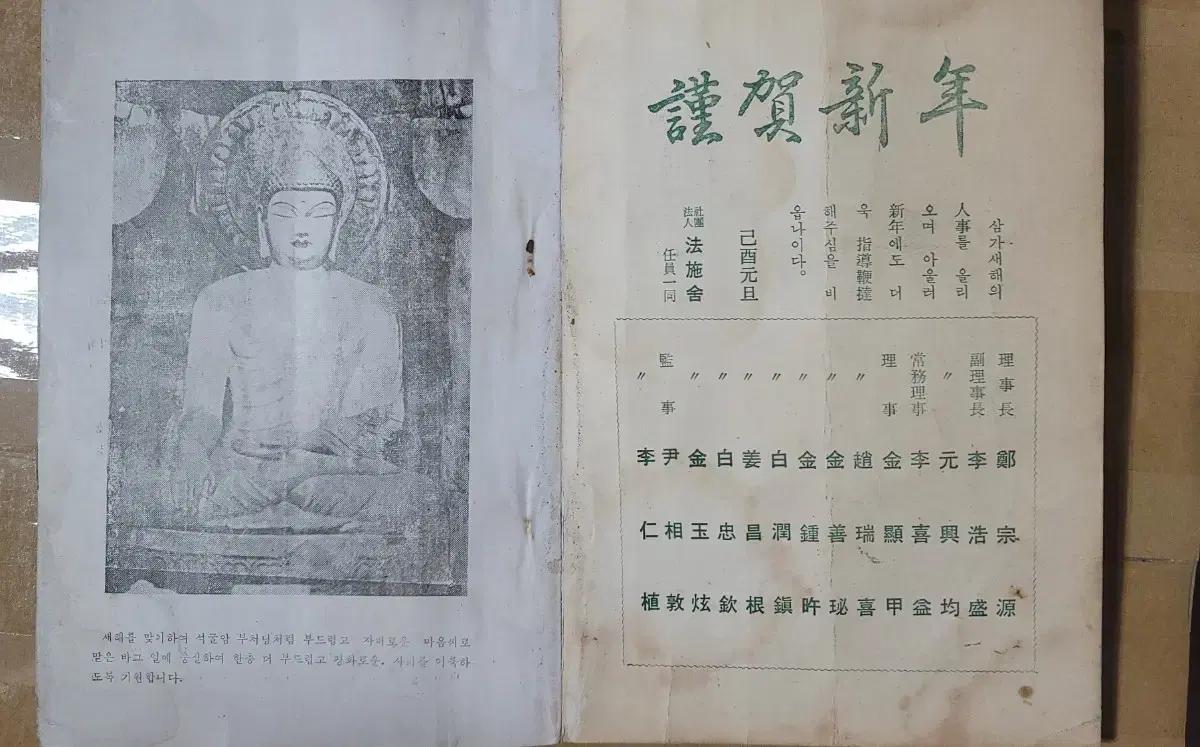 새해를 맞이하여 석굴암 부처님처럼 부드럽고 자비로운 마음씨로
맡은 바그 일에 충실하여 한층 더 부드럽고 평화로운. 사회를 이룩하
도록 기원합니다.
謹賀新年
삼가새해의
人事를 올리
오며 아울러
新年에도 더
욱 指導鞭撻
해주심을 비
옵나이다。
己酉元旦
社團法人 法施舍
任員一同
理事長 鄭宗源
副理事長 李浩盛
〃 元興均
常務理事 李喜益
理事 金顯甲
〃 趙瑞喜
〃 金善珌
〃 金鍾旿
〃 白潤鎭
〃 姜昌根
〃 白忠欽
〃 金玉炫
監事 尹相敦
〃 李仁植